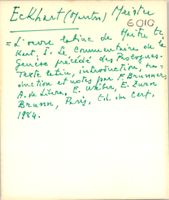 Eckhart (Maestro) Meister
6010
= L'œuvre latine de Maître Ec
kart, I. Le Commentaire de la
Genèse précédé des Prologues.
Texte latin, introduction, tra-
duction et notes par F. Brunner,
A. de Libera, E. Wéber, E. Zum
Brunn, Paris, éd. du Cerf,
1984.